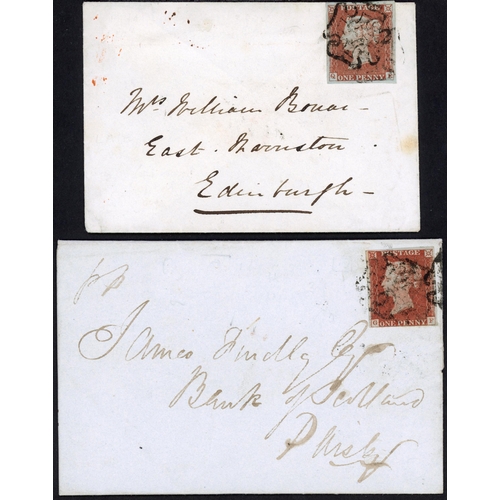 POSTAGE
ONE PENNY
Mrs William Bonar
East Warriston
Edinburgh
POSTAGE
ONE PENNY
pp
James Findlay Esq
Bank of Scotland
Paisley